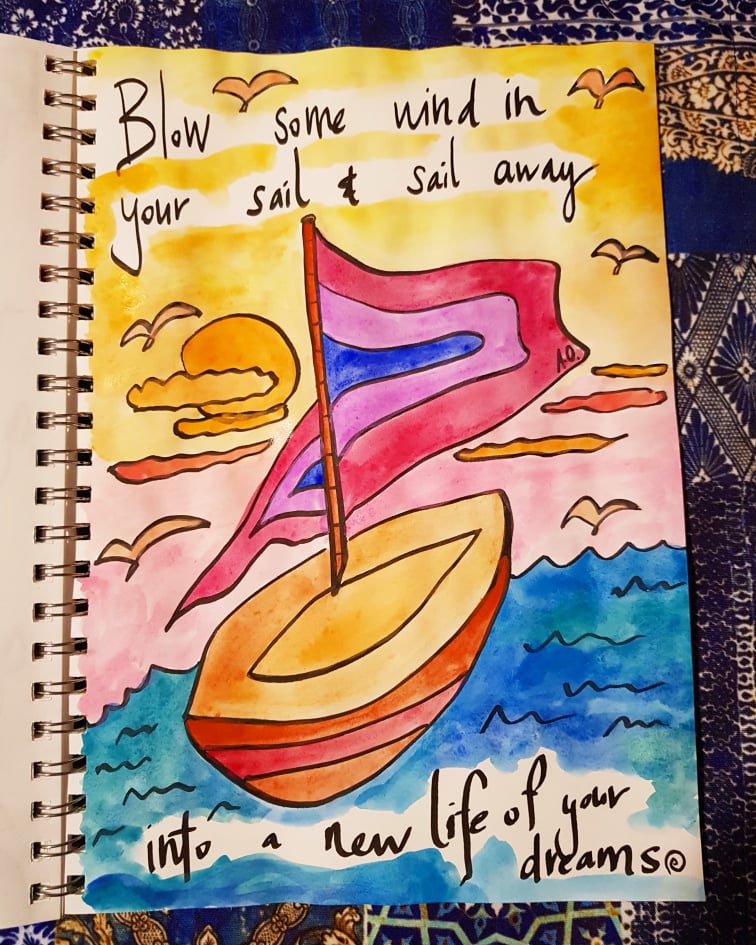 Blow some wind in
your sail & sail away
A.O.
into a new life of your
dreams